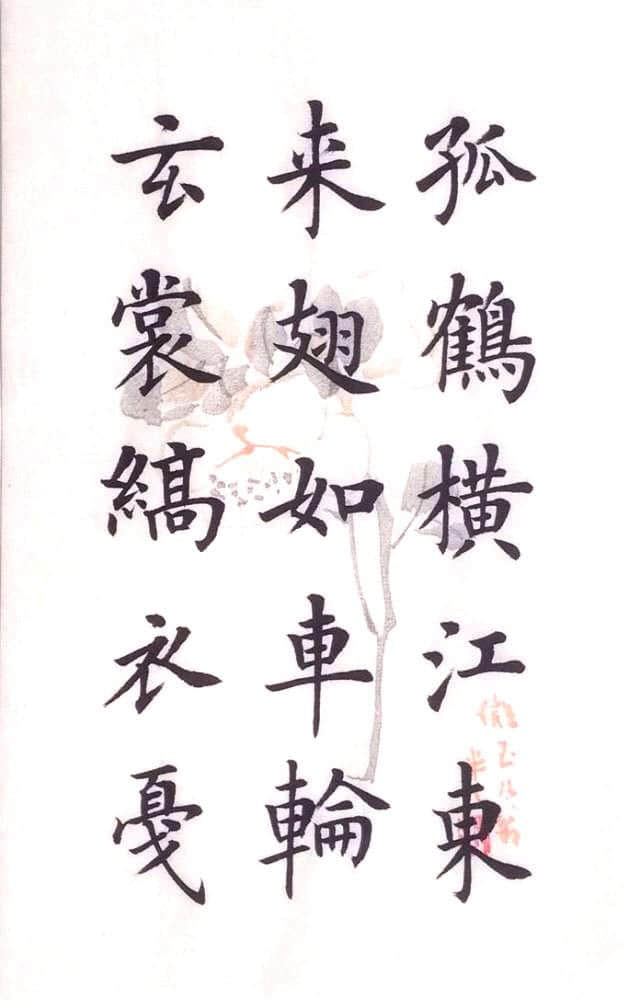 孤鶴横江東
来翅如車輪
玄裳縞衣戛